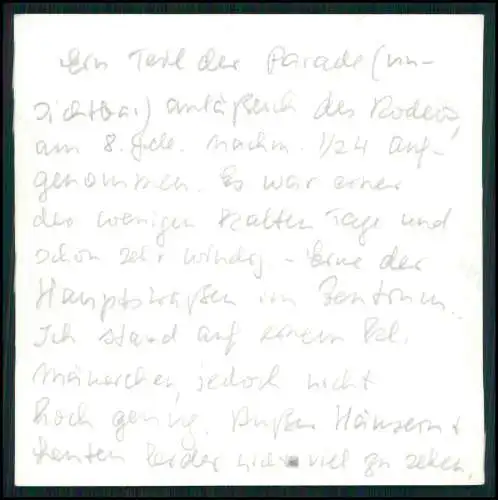 Ein Teil der Parade (un-
sichtbar) anläßlich des Rodeos,
am 8. Feb. nachm. 1/2 4 auf-
genommen. Es war einer
der wenigen kalten Tage und
schon sehr windig - Eine der
Hauptstraßen im Zentrum.
Ich stand auf einem kl.
Mäuerchen, jedoch nicht
hoch genug. Außer Häusern +
Leuten leider nicht viel zu sehen.